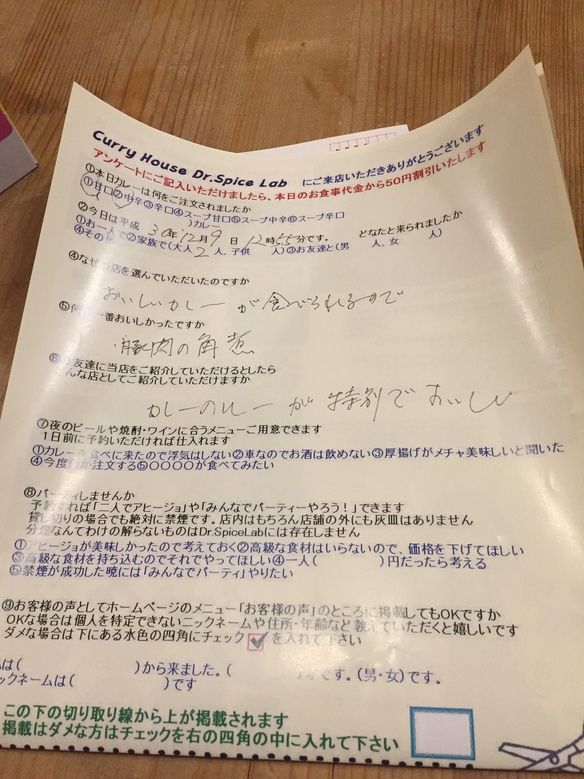 Curry House Dr.Spice Lab にご来店いただきありがとうございます
アンケートにご記入いただけましたら、本日のお食事代金から50円割引いたします
①本日カレーは何をご注文されましたか
①甘口②中辛③辛口④スープ甘口⑤スープ中辛⑥スープ辛口
)カレー
②今日は平成 30年12月9日 12時55分です。 どなたと来られましたか
①お一人で②家族で(大人 2 人、子供 人)③お友達と(男 人、女 人)
④その
④なぜ当店を選んでいただいたのですか
おいしいカレーが食べられるので
⑤何 一番おいしかったですか
豚肉の角煮
⑥ 友達に当店をご紹介していただけるとしたら
んな店としてご紹介していただけますか
カレーのルーが特別でおいしい
⑦夜のビールや焼酎・ワインに合うメニューご用意できます
1日前に予約いただければ仕入れます
①カレーを食べに来たので浮気はしない②車なのでお酒は飲めない③厚揚げがメチャ美味しいと聞いた
④今度 か注文する⑤〇〇〇〇が食べてみたい
⑧パーティしませんか
予約すれば「二人でアヒージョ」や「みんなでパーティーやろう!」できます
貸し切りの場合でも絶対に禁煙です。店内はもちろん店舗の外にも灰皿はありません
分煙なんてわけの解らないものはDr.SpiceLabには存在しません
①アヒージョが美味しかったので考えておく②高級な食材はいらないので、価格を下げてほしい
③高級な食材を持ち込むのでそれでやってほしい④一人( )円だったら考える
⑤禁煙が成功した暁には「みんなでパーティ」やりたい
⑨お客様の声としてホームページのメニュー「お客様の声」のところに掲載してもOKですか
OKな場合は個人を特定できないニックネームや住所・年齢など教えていただくと嬉しいです
ダメな場合は下にある水色の四角にチェック を入れて下さい
は( )から来ました。( です。(男・女)です。
ックネームは( )です
この下の切り取り線から上が掲載されます
掲載はダメな方はチェックを右の四角の中に入れて下さい